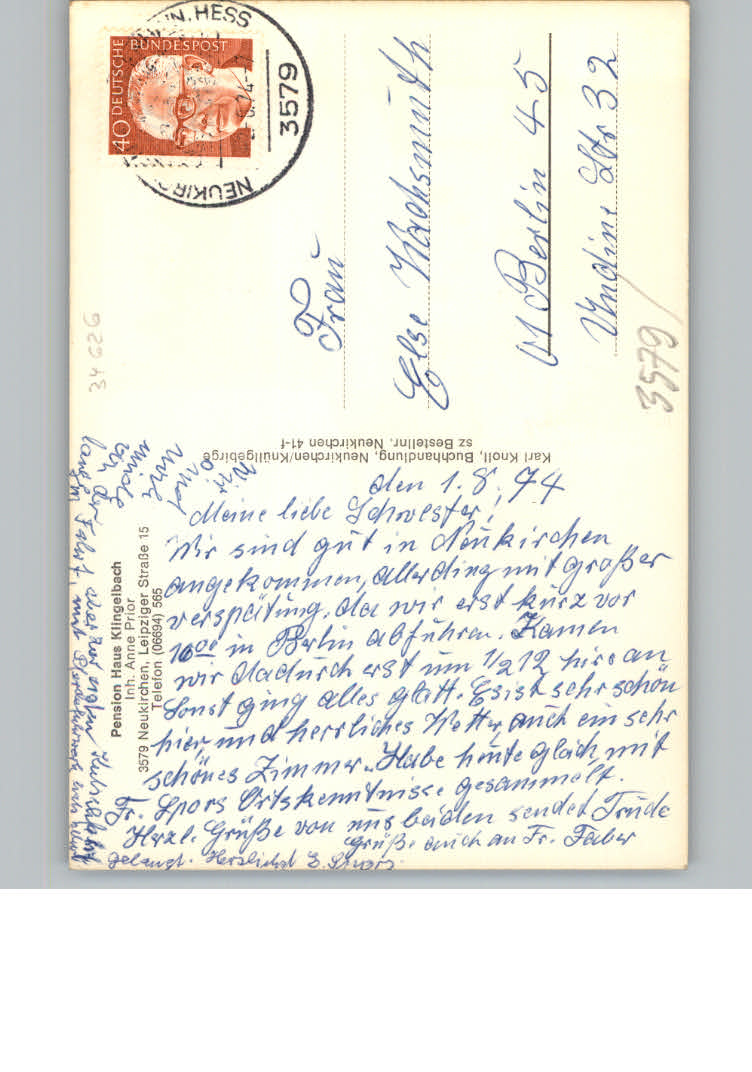 DEUTSCHE BUNDESPOST
40
NEUKIRCHEN
HESS
3579
Frau
Else Wachsmuth
1 Berlin 45
Undine Str 32
3579
34626
Karl Knoll, Buchhandlung, Neukirchen/Knüllgebirge
sz Bestellnr. Neukirchen 41-f
Pension Haus Klingelbach
Inh. Anne Prior
3579 Neukirchen, Leipziger Straße 15
Telefon (06694) 565
den 1.8.74
Meine liebe Schwester,
Wir sind gut in Neukirchen
angekommen, allerding mit großer
verspätung, da wir erst kurz vor
16 00 in Berlin abfuhren. Kamen
wir dadurch erst um 1/2 12 hier an
Sonst ging alles glatt. Es ist sehr schön
hier, und herrliches Wetter, auch ein sehr
schönes Zimmer. Habe heute gleich, mit
Fr. Spors Ortskenntnisse gesammelt.
Herzl. Grüße von uns beiden sendet Trude
Grüße auch an Fr. Faber
Wir
müde
von der
langen Fahrt, aber zur
mit Pferdefuhrwerk
gelangt. Herzlichst E. Spors.